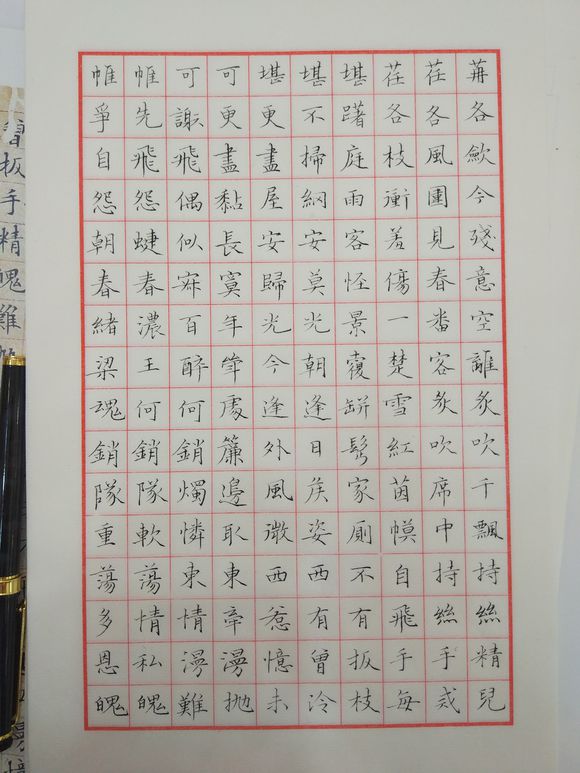 苒各歛今殘意空離炙吹千飄持絲精兒
荏各風圍見春番容炙吹席中持絲手或
荏各枝衝羞傷一楚雪紅茵幙自飛手每
堪躇庭雨客怪景缾髩家厠不有扳枝
堪不掃網安莫光朝逢目矦姿西有曾泠
堪更盡屋安歸光今逢外風微西惹憶未
可更盡黏長寞年聳處簾邊取東牽漫抛
可謝飛偶似寂百醉何銷燭憐東情漫難
帷先飛怨蜨春濃王何銷隊軟蕩情私魄
帷爭自怨朝春緒梁魂銷隊重蕩多恩魄
扳手精魄難